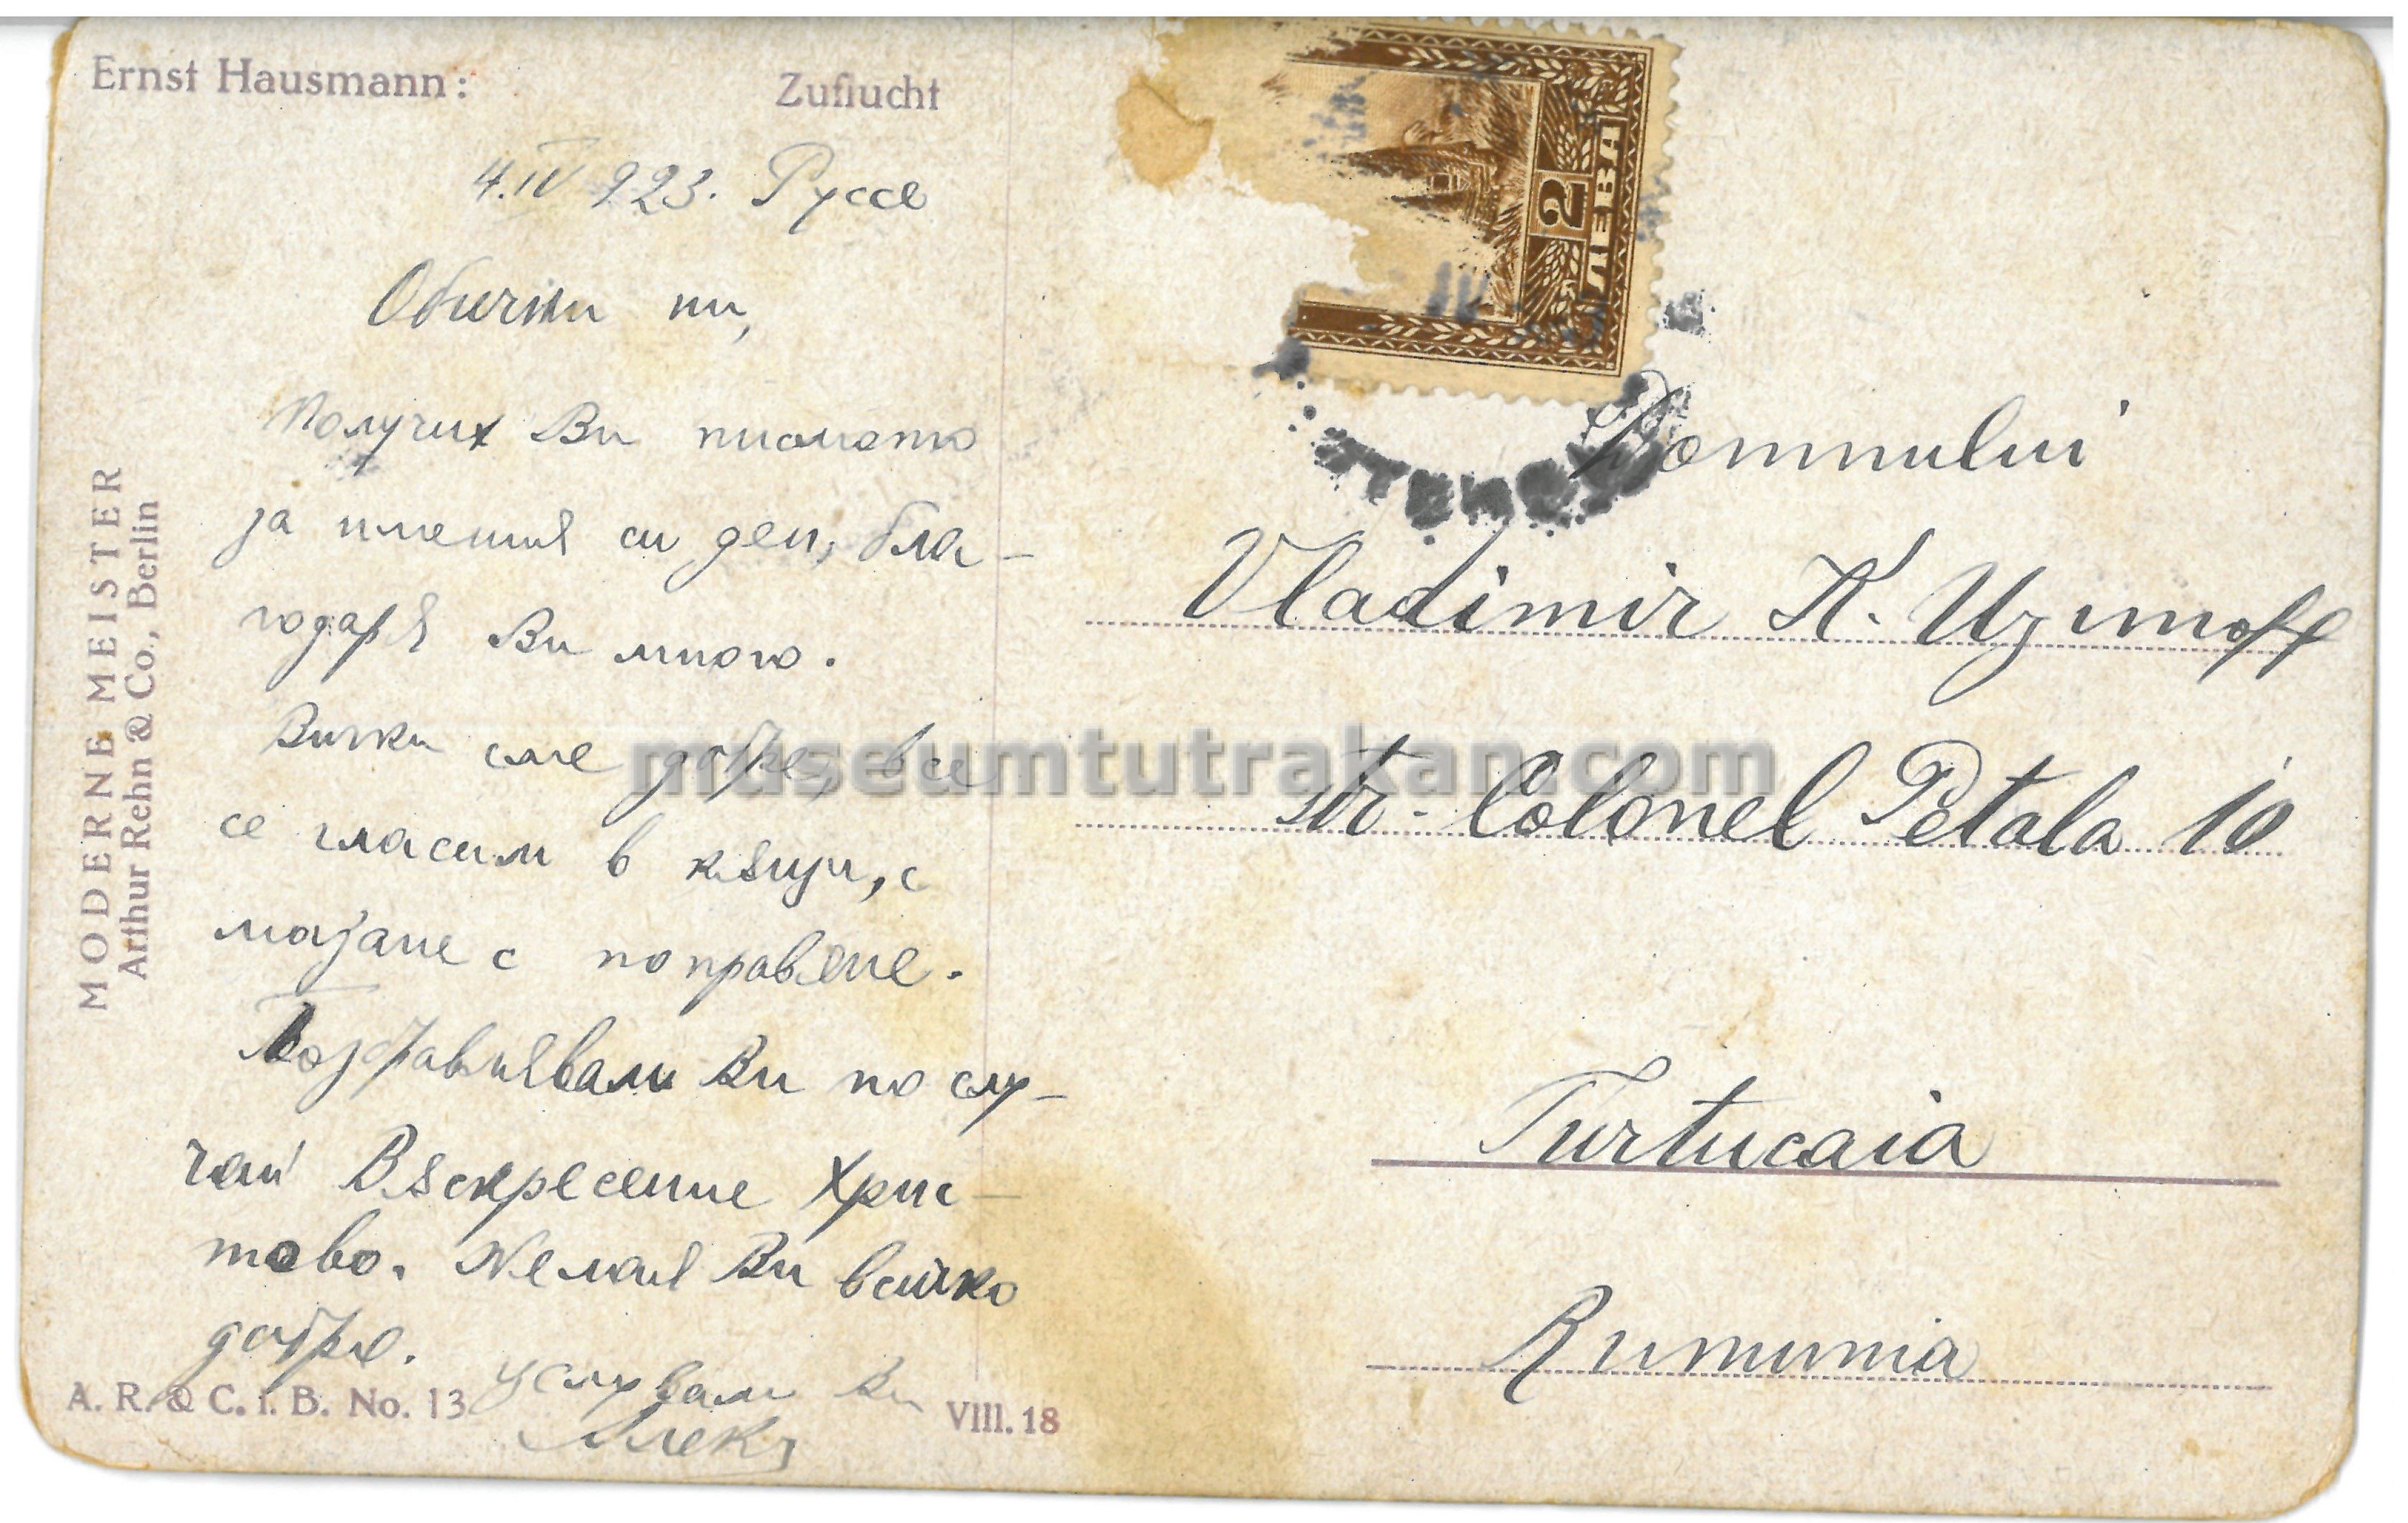 Ernst Hausmann:
Zuflucht
4.IV 923. Руссе
Обични ни,
Получих Ви писмото
за имения си ден, бла-
годаря Ви много.
Вички сме добре, все
се гласим в къщи, с
мазане с поправене.
Поздравлявам Ви по слу-
чай Възкресение Хрис-
тово. Желая Ви всичко
добре.
Целувам Ви
MODERNE MEISTER
Arthur Rehn & Co., Berlin
A. R. & C. i. B. No. 13
VIII. 18
2 ЛЕВА
Domnului
Vladimir K. Uzunoff
str. Colonel Petala 10
Turtucaia
Rumunia
museumtutrakan.com